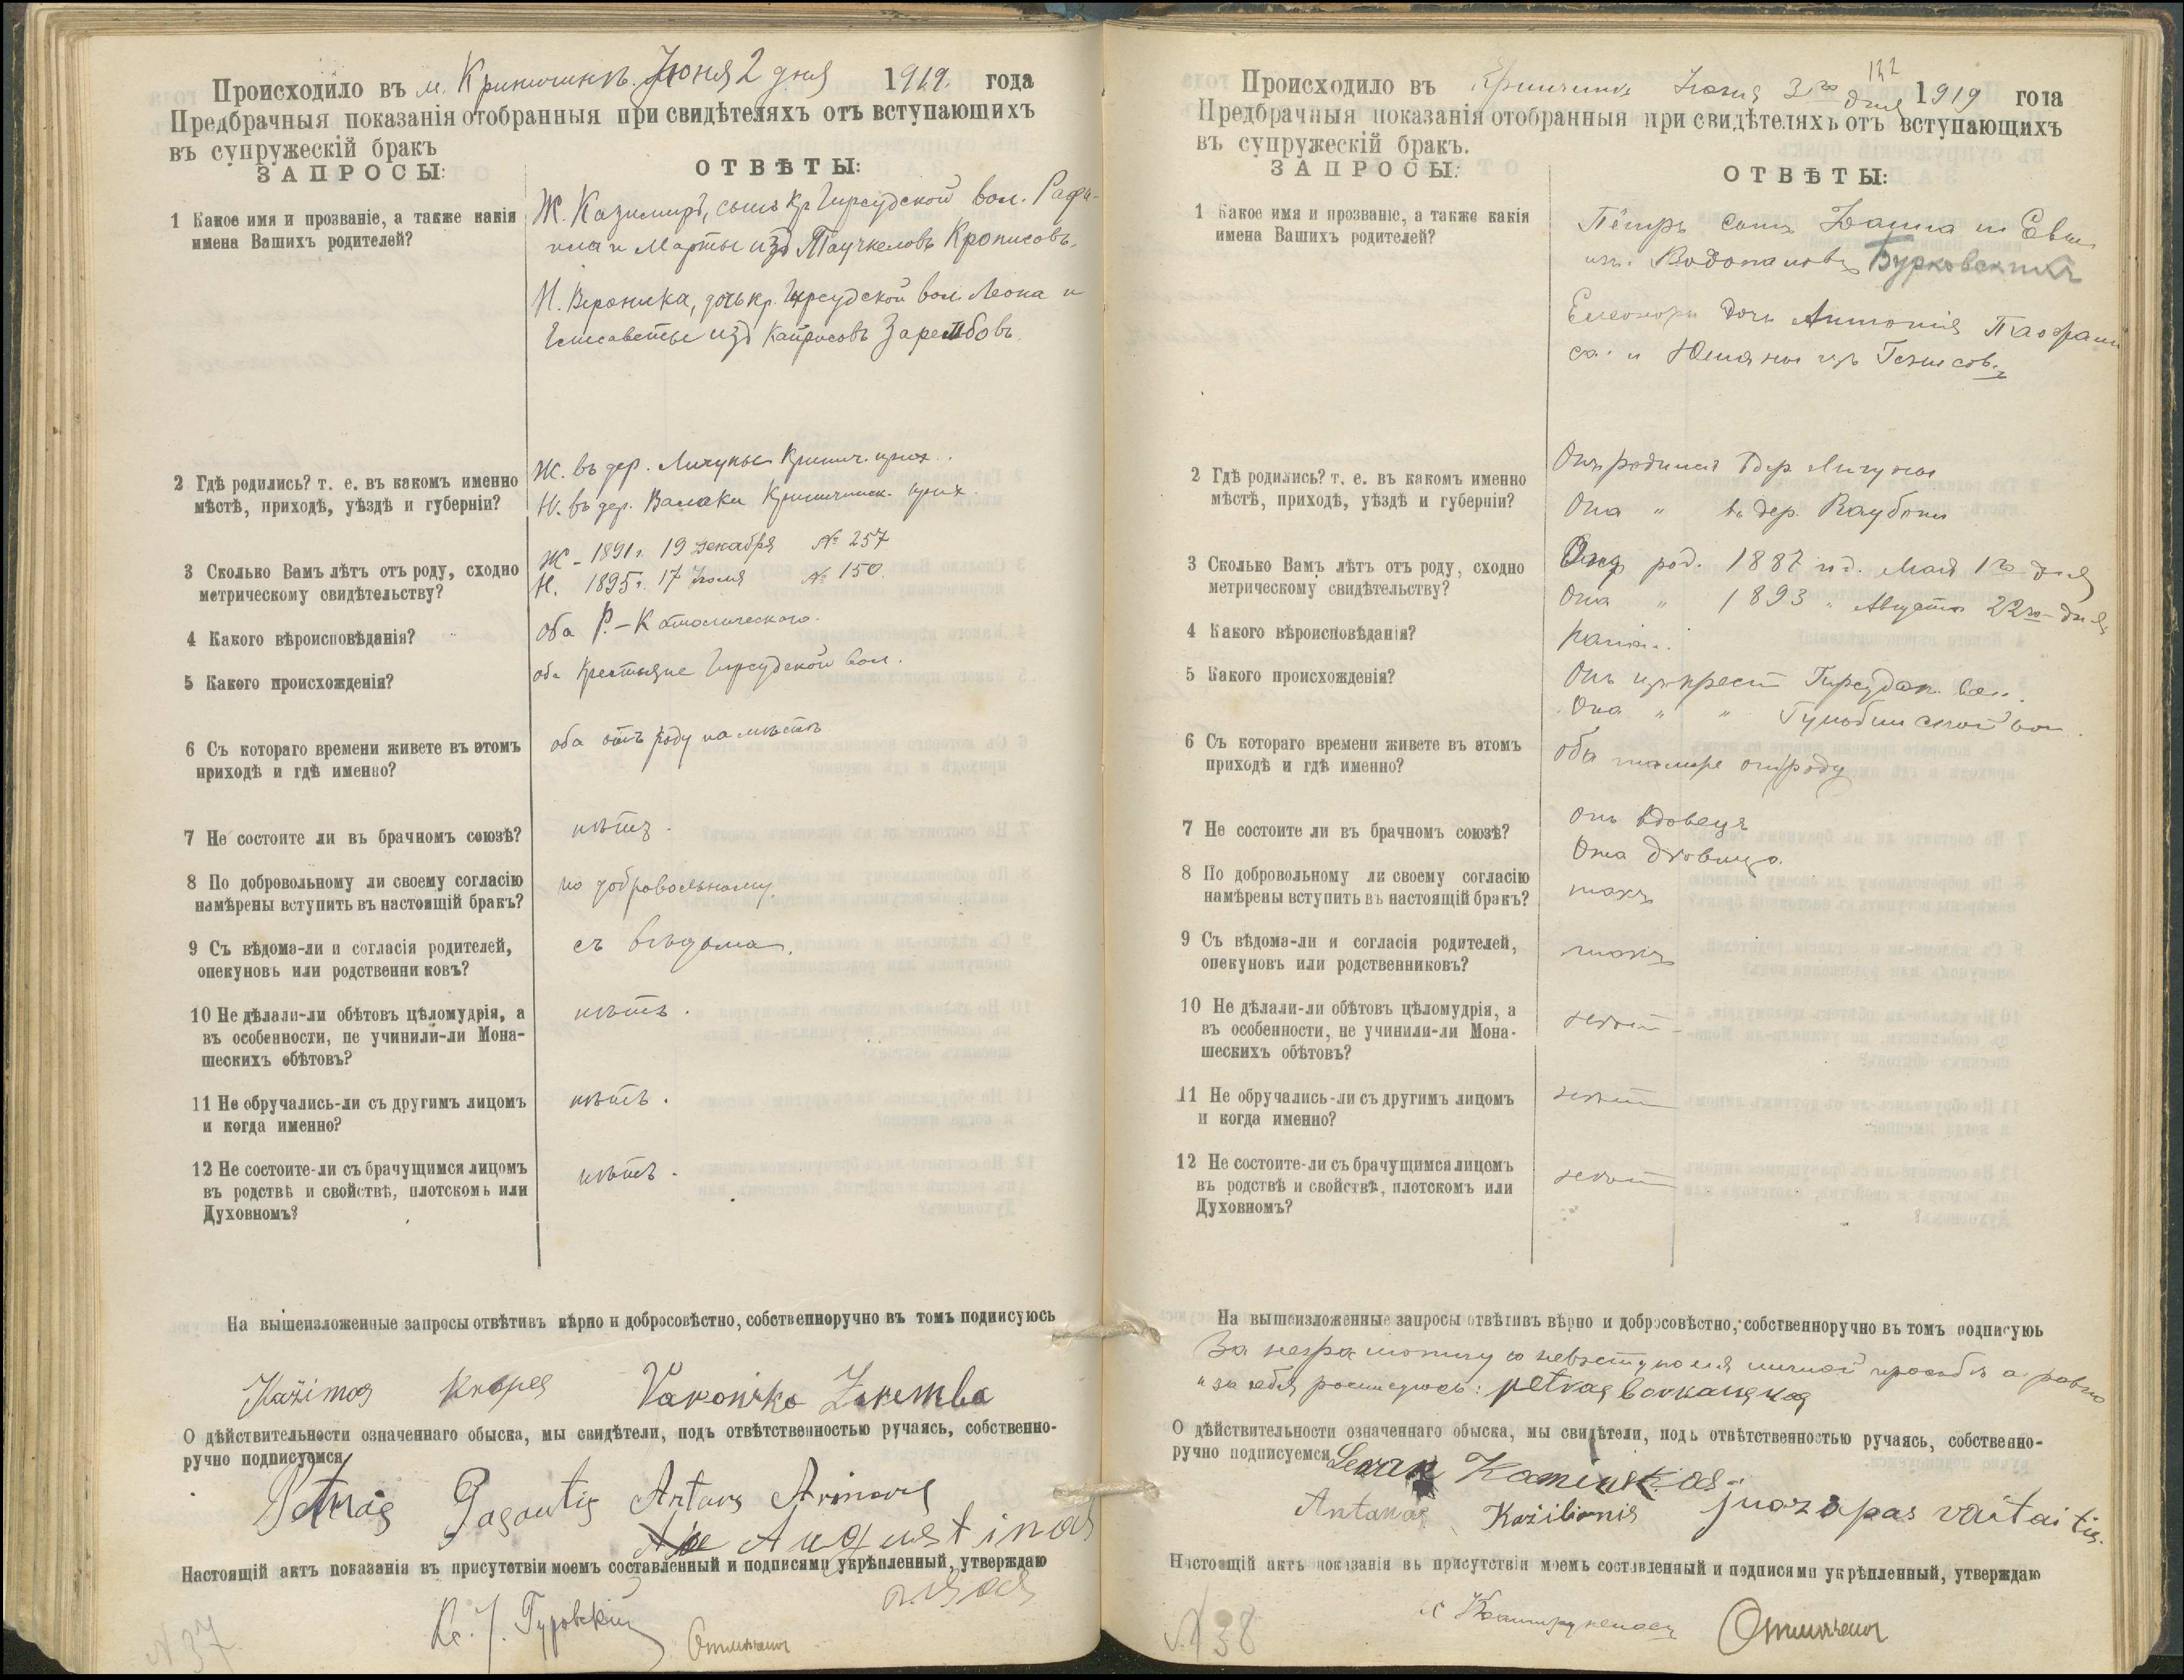 Происходило въ м. Кринчинъ. Июня 2 дня 1919. года
Предбрачныя показанія отобранныя при свидѣтеляхъ отъ вступающихъ
въ супружескій бракъ
ЗАПРОСЫ:
ОТВѢТЫ:
1 Какое имя и прозваніе, а также какія
имена Вашихъ родителей?
Ж. Казимиръ, сынъ кр. Гирсудской вол. Рафа-
ила и Марты изъ Паучкеловъ Крописовъ.
Н. Вероника, дочь кр. Гирсудской вол. Леона и
Елисаветы изъ Зарембовъ
2 Гдѣ родились? т. е. въ какомъ именно
мѣстѣ, приходѣ, уѣздѣ и губерніи?
Ж. въ дер. Личуны Кринч. прих.
Н. въ дер. Валаки Кринчинск. прих.
3 Сколько Вамъ лѣтъ отъ роду, сходно
метрическому свидѣтельству?
Ж - 1891 г. 19 декабря № 257
Н. 1895 г. 17 Июля № 150
4 Какого вѣроисповѣданія?
оба Р.-Католическаго.
5 Какого происхожденія?
оба Крестьяне Гирсудской вол.
6 Съ котораго времени живете въ этомъ
приходѣ и гдѣ именно?
оба отъ роду на мѣстѣ
7 Не состоите ли въ брачномъ союзѣ?
нѣтъ.
8 По добровольному ли своему согласію
намѣрены вступить въ настоящій бракъ?
по добровольному.
9 Съ вѣдома-ли и согласія родителей,
опекуновъ или родственниковъ?
съ вѣдома.
10 Не дѣлали-ли обѣтовъ цѣломудрія, а
въ особенности, не учинили-ли Мона-
шескихъ обѣтовъ?
нѣтъ.
11 Не обручались-ли съ другимъ лицомъ
и когда именно?
нѣтъ.
12 Не состоите-ли съ брачущимся лицомъ
въ родствѣ и свойствѣ, плотскомъ или
Духовномъ?
нѣтъ.
На вышеизложенные запросы отвѣтивъ вѣрно и добросовѣстно, собственноручно въ томъ подписуюсь
Kažimos Varonika Zaremba
О дѣйствительности означеннаго обыска, мы свидѣтели, подъ отвѣтственностью ручаясь, собственно-
ручно подписуемся
Petras
Augustinas
Настоящій актъ показанія въ присутствіи моемъ составленный и подписями укрѣпленный, утверждаю
Гуровскій
N 37
122
Происходило въ Кринчинъ Июня 3го дня 1919 года
Предбрачныя показанія отобранныя при свидѣтеляхъ отъ вступающихъ
въ супружескій бракъ.
ЗАПРОСЫ:
ОТВѢТЫ:
1 Какое имя и прозваніе, а также какія
имена Вашихъ родителей?
Пётръ сынъ и Евы
изъ Бурковскихъ
Елеонора дочь Антонія
и Юліяны изъ
2 Гдѣ родились? т. е. въ какомъ именно
мѣстѣ, приходѣ, уѣздѣ и губерніи?
Онъ родился дер. Личуны
Она " въ дер. Раубоны
3 Сколько Вамъ лѣтъ отъ роду, сходно
метрическому свидѣтельству?
Онъ род. 1887 Мая 1го дня
Она " 1893 " Августа 22го дня
4 Какого вѣроисповѣданія?
5 Какого происхожденія?
Онъ изъ крест
Она " "
6 Съ котораго времени живете въ этомъ
приходѣ и гдѣ именно?
оба отъ роду
7 Не состоите ли въ брачномъ союзѣ?
Онъ вдовецъ
Она
8 По добровольному ли своему согласію
намѣрены вступить въ настоящій бракъ?
такъ
9 Съ вѣдома-ли и согласія родителей,
опекуновъ или родственниковъ?
такъ
10 Не дѣлали-ли обѣтовъ цѣломудрія, а
въ особенности, не учинили-ли Мона-
шескихъ обѣтовъ?
11 Не обручались-ли съ другимъ лицомъ
и когда именно?
12 Не состоите-ли съ брачущимся лицомъ
въ родствѣ и свойствѣ, плотскомъ или
Духовномъ?
На вышеизложенные запросы отвѣтивъ вѣрно и добросовѣстно, собственноручно въ томъ подписуюь
За неграмотную невѣсту по ея личной просьбѣ а равно
и за себя росписуюсь:
О дѣйствительности означеннаго обыска, мы свидѣтели, подъ отвѣтственностью ручаясь, собственно-
ручно подписуемся
Kaminskas
Antanas Kažilionis juozapas vaitaitis.
Настоящій актъ показанія въ присутствіи моемъ составленный и подписями укрѣпленный, утверждаю
N 38